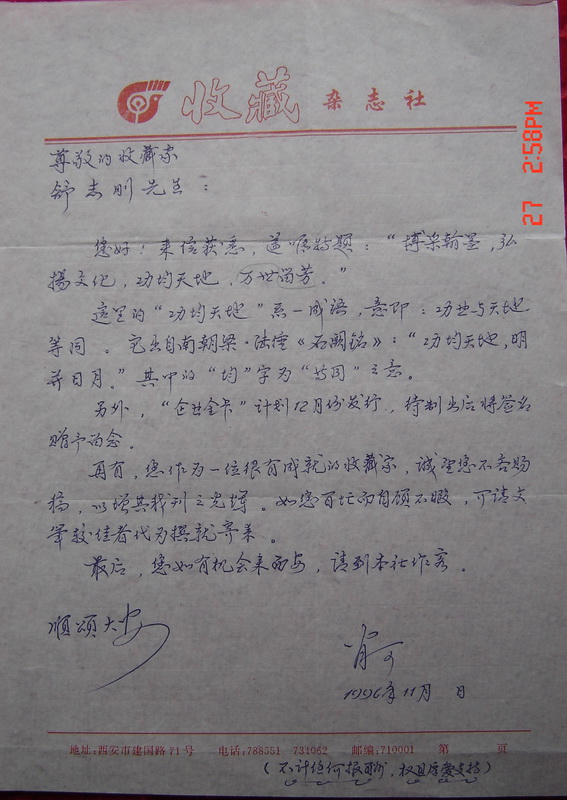 收藏 杂志社
尊敬的收藏家
舒志刚先生：
您好！来信获悉，遵嘱特题："博采翰墨，弘
扬文化，功均天地，万世留芳。"
这里的"功均天地"系一成语，意即：功业与天地
等同。它出自南朝梁·陆倕《石阙铭》："功均天地，明
并日月。"其中的"均"字为"等同"之意。
另外，"企业金卡"计划12月份发行，待制出后将签名
赠予为念。
再有，您作为一位很有成就的收藏家，诚望您不吝赐
稿，以增其我刊之光辉。如您百忙而自顾不暇，可请文
笔较佳者代为撰就寄来。
最后，您如有机会来西安，请到本社作客。
顺颂大安
1996年11月 日
地址:西安市建国路71号 电话:788551 731062 邮编:710001 第 页
（不计任何报酬，权且厚爱支持）
27 2:58PM